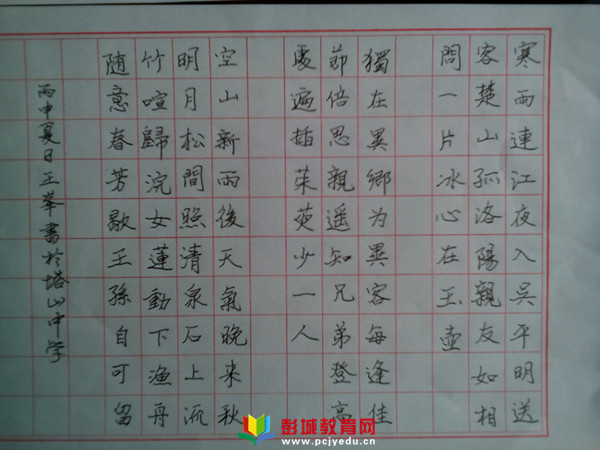 寒雨連江夜入吳平明送
客楚山孤洛陽親友如相
問一片冰心在玉壺
獨在異鄉为異客每逢佳
節倍思親遥知兄弟登高
處遍插茱萸少一人
空山新雨後天氣晚来秋
明月松間照清泉石上流
竹喧歸浣女蓮動下漁舟
随意春芳歇王孫自可留
丙申夏日王峯書於塔山中学
彭城教育网
www.pcjyedu.cn